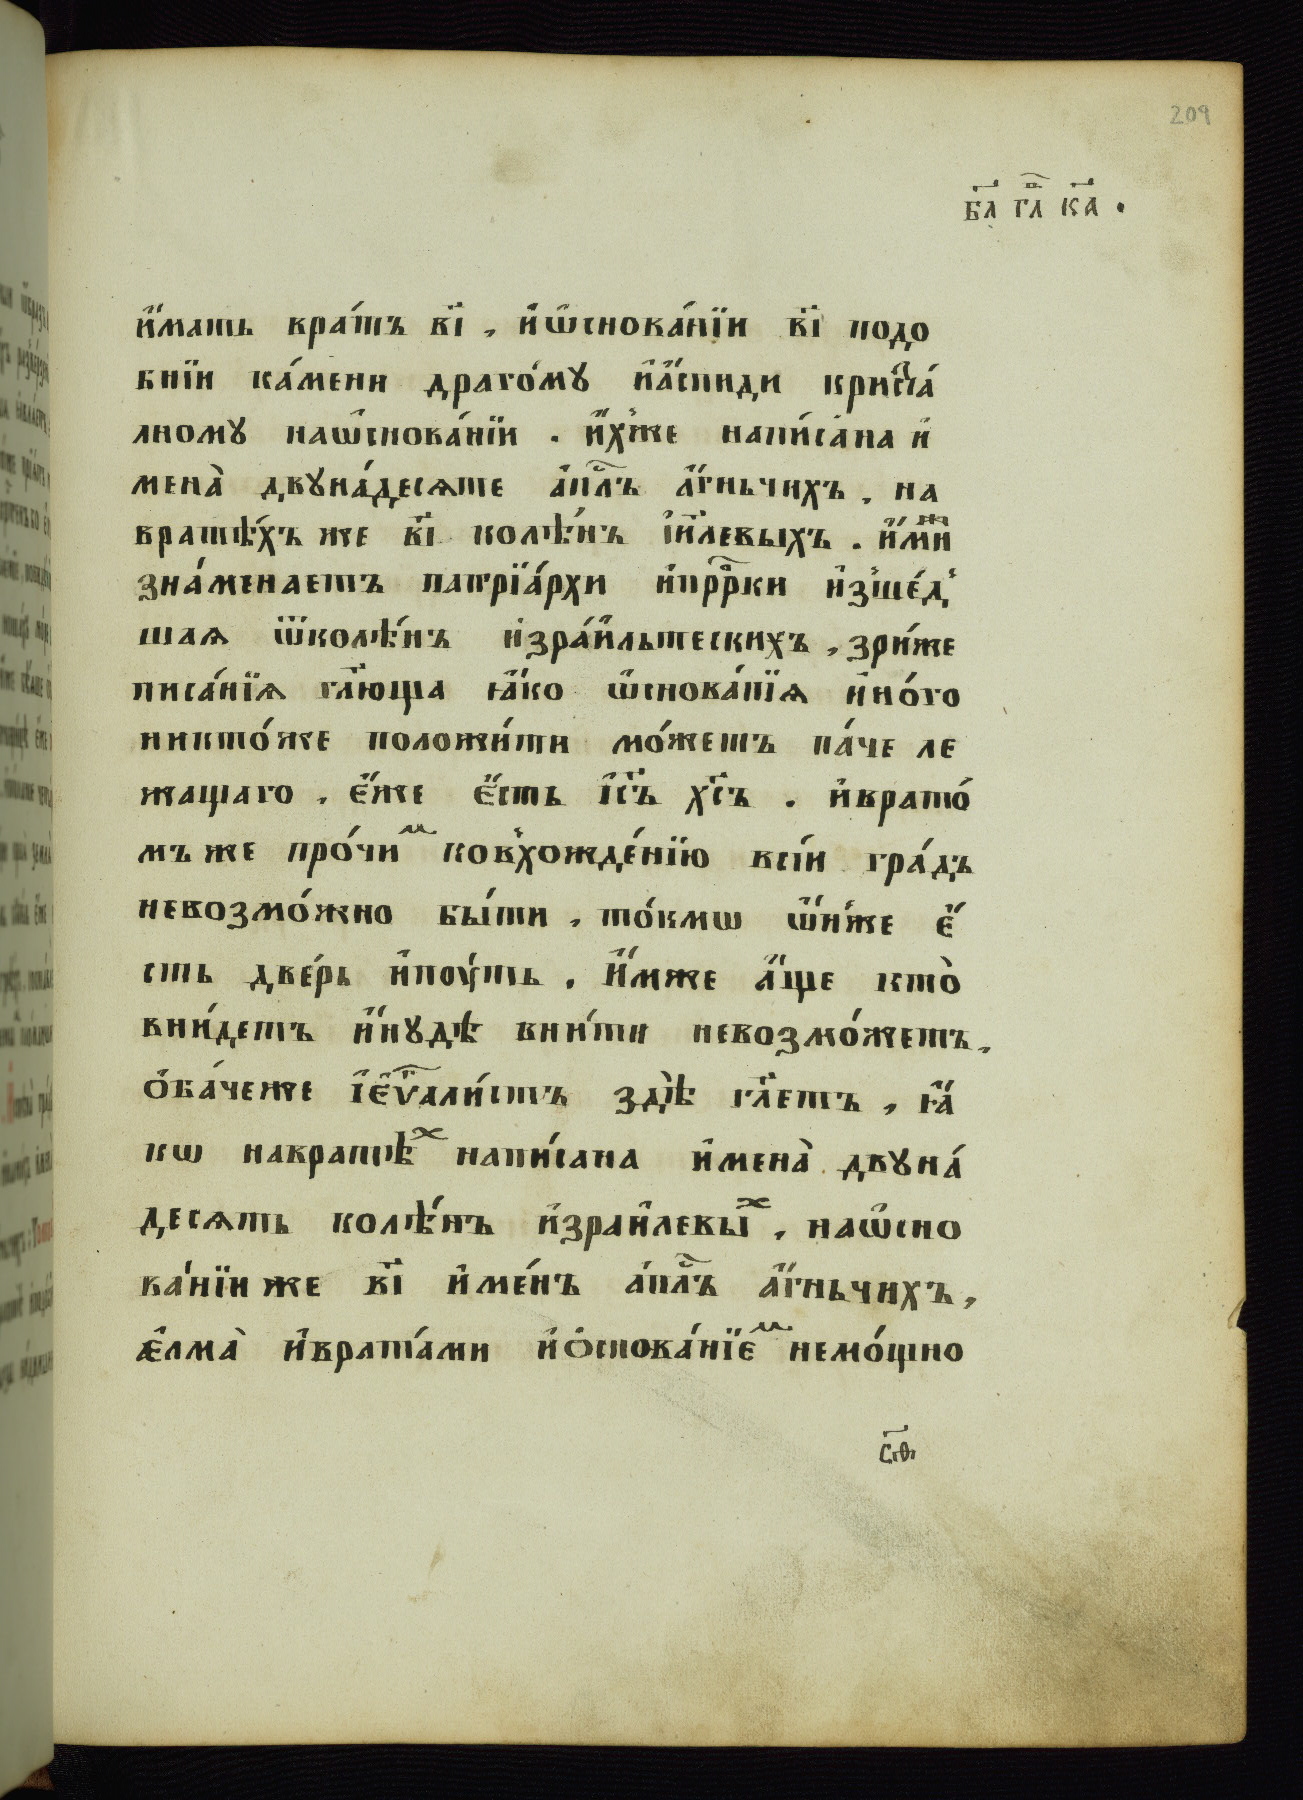 209
бл҃ гл҃в ка҃ .
и҆́мать вра́тъ в҃і , и҆ѡ҆снова́нїи в҃і подо
бнїи ка́мени драго́му и҆а҆́спиди криста́
лному наѡ҆снова́нїи . и҆́хже напи́сана и҆
мена̀ двуна́десѧте а҆п҃лъ а҆́гньчихъ , на
вратѣ́хъ же в҃і колѣ́нъ і҆и҃левыхъ . и҆́миж
зна́менаетъ патрїа́рхи и҆пр҃рки и҆зше́д
шаѧ ѿколѣ́нъ и҆зра́ильтескихъ , зри́же
писа́нїѧ гл҃юща ꙗ҆́ко ѡ҆снова́нїѧ и҆но́го
никто́же положи́ти мо́жетъ па́че ле
жащаго , є҆́же є҆́сть і҆с҃ъ хс҃ъ . и҆врато́
мъ же про́чим ковхожде́нїю всі́и гра́дъ
невозмо́жно бы́ти , то́кмѡ ѡ҆ни́же є҆́
сть две́рь и҆пꙋ́ть , и҆́мже а҆́ще кто̀
вни́детъ и҆́нудѣ вни́ти невозмо́жетъ ,
ѻ҆ба́чеже і҆є҆ѵ҃али́стъ здѣ̀ гл҃етъ , ꙗ҆́
кѡ навратѣх напи́сана и҆мена̀ двуна́
десѧть колѣ́нъ и҆зраи҆левых , наѡ҆сно
ва́нїи же в҃і и҆ме́нъ а҆п҃лъ а҆́гньчихъ ,
ꙗ҆́лма̀ и҆врата́ми и҆ѻ҆снова́нїєм немо́щно
с҃ѳ